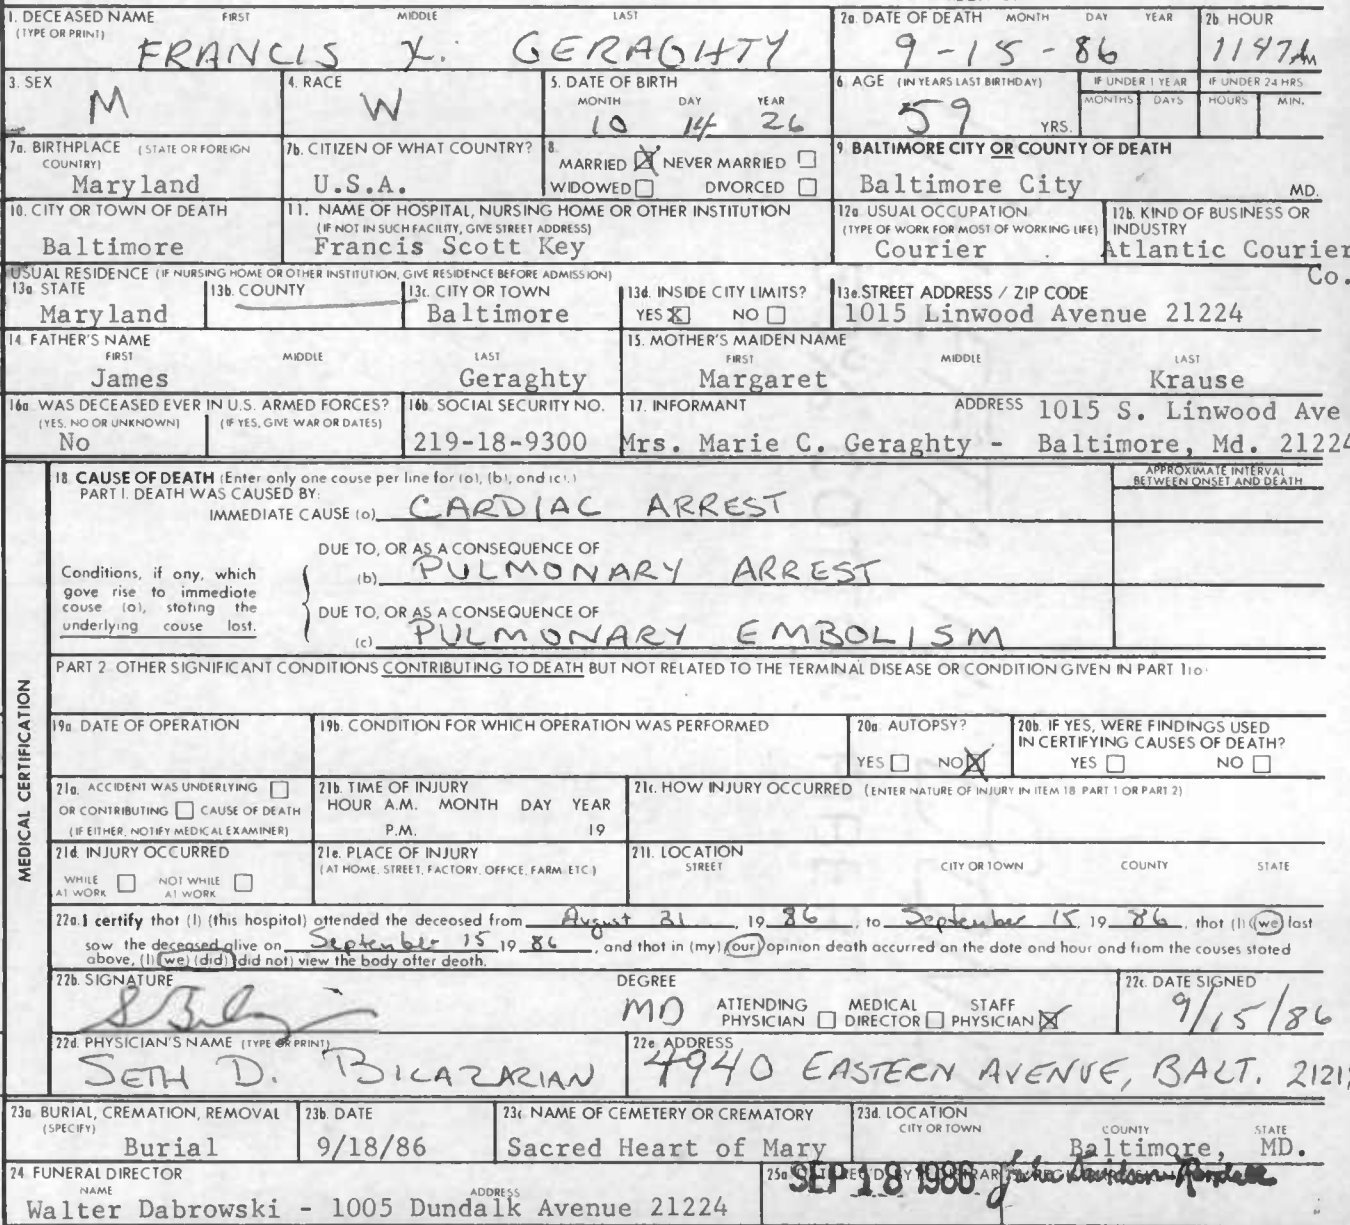 1. DECEASED NAME FIRST MIDDLE LAST
(TYPE OR PRINT)
FRANCIS X. GERAGHTY
2a. DATE OF DEATH MONTH DAY YEAR
9-15-86
2b. HOUR
1147 AM
3. SEX
M
4. RACE
W
5. DATE OF BIRTH
MONTH DAY YEAR
10 14 26
6. AGE (IN YEARS LAST BIRTHDAY)
59 YRS.
IF UNDER 1 YEAR
MONTHS DAYS
IF UNDER 24 HRS
HOURS MIN.
7a. BIRTHPLACE (STATE OR FOREIGN
COUNTRY)
Maryland
7b. CITIZEN OF WHAT COUNTRY?
U.S.A.
8.
MARRIED X NEVER MARRIED
WIDOWED DIVORCED
9. BALTIMORE CITY OR COUNTY OF DEATH
Baltimore City MD.
10. CITY OR TOWN OF DEATH
Baltimore
11. NAME OF HOSPITAL, NURSING HOME OR OTHER INSTITUTION
(IF NOT IN SUCH FACILITY, GIVE STREET ADDRESS)
Francis Scott Key
12a. USUAL OCCUPATION
(TYPE OF WORK FOR MOST OF WORKING LIFE)
Courier
12b. KIND OF BUSINESS OR
INDUSTRY
Atlantic Courier
Co.
USUAL RESIDENCE (IF NURSING HOME OR OTHER INSTITUTION, GIVE RESIDENCE BEFORE ADMISSION)
13a. STATE
Maryland
13b. COUNTY
13c. CITY OR TOWN
Baltimore
13d. INSIDE CITY LIMITS?
YES X NO
13e. STREET ADDRESS / ZIP CODE
1015 Linwood Avenue 21224
14. FATHER'S NAME
FIRST MIDDLE LAST
James Geraghty
15. MOTHER'S MAIDEN NAME
FIRST MIDDLE LAST
Margaret Krause
16a. WAS DECEASED EVER IN U.S. ARMED FORCES?
(YES, NO OR UNKNOWN) (IF YES, GIVE WAR OR DATES)
No
16b. SOCIAL SECURITY NO.
219-18-9300
17. INFORMANT ADDRESS 1015 S. Linwood Ave
Mrs. Marie C. Geraghty - Baltimore, Md. 21224
MEDICAL CERTIFICATION
18. CAUSE OF DEATH (Enter only one cause per line for (a), (b), and (c).)
APPROXIMATE INTERVAL
BETWEEN ONSET AND DEATH
PART I. DEATH WAS CAUSED BY:
IMMEDIATE CAUSE (a) CARDIAC ARREST
DUE TO, OR AS A CONSEQUENCE OF
(b) PULMONARY ARREST
Conditions, if any, which
gave rise to immediate
cause (a), stating the
underlying cause last.
DUE TO, OR AS A CONSEQUENCE OF
(c) PULMONARY EMBOLISM
PART 2 OTHER SIGNIFICANT CONDITIONS CONTRIBUTING TO DEATH BUT NOT RELATED TO THE TERMINAL DISEASE OR CONDITION GIVEN IN PART 1(a)
19a. DATE OF OPERATION
19b. CONDITION FOR WHICH OPERATION WAS PERFORMED
20a. AUTOPSY?
YES NO X
20b. IF YES, WERE FINDINGS USED
IN CERTIFYING CAUSES OF DEATH?
YES NO
21a. ACCIDENT WAS UNDERLYING
OR CONTRIBUTING CAUSE OF DEATH
(IF EITHER, NOTIFY MEDICAL EXAMINER)
21b. TIME OF INJURY
HOUR A.M. MONTH DAY YEAR
P.M. 19
21c. HOW INJURY OCCURRED (ENTER NATURE OF INJURY IN ITEM 18 PART 1 OR PART 2)
21d. INJURY OCCURRED
WHILE AT WORK NOT WHILE AT WORK
21e. PLACE OF INJURY
(AT HOME, STREET, FACTORY, OFFICE, FARM, ETC.)
21f. LOCATION
STREET CITY OR TOWN COUNTY STATE
22a. I certify that (I) (this hospital) attended the deceased from August 31, 1986, to September 15, 1986, that (I) (we) last
saw the deceased alive on September 15 1986, and that in (my) (our) opinion death occurred on the date and hour and from the causes stated
above, (I) (we) (did) (did not) view the body after death.
22b. SIGNATURE DEGREE
MD
ATTENDING PHYSICIAN MEDICAL DIRECTOR STAFF PHYSICIAN X
22c. DATE SIGNED
9/15/86
22d. PHYSICIAN'S NAME (TYPE OR PRINT)
SETH D. BILAZARIAN
22e. ADDRESS
4940 EASTERN AVENUE, BALT.
23a. BURIAL, CREMATION, REMOVAL
(SPECIFY)
Burial
23b. DATE
9/18/86
23c. NAME OF CEMETERY OR CREMATORY
Sacred Heart of Mary
23d. LOCATION
CITY OR TOWN COUNTY STATE
Baltimore, MD.
24. FUNERAL DIRECTOR
NAME ADDRESS
Walter Dabrowski - 1005 Dundalk Avenue 21224
25a.
SEP 18 1986